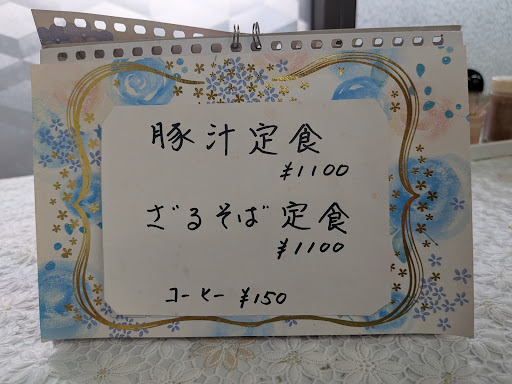 豚汁定食
¥1100
ざるそば定食
¥1100
コーヒー ¥150